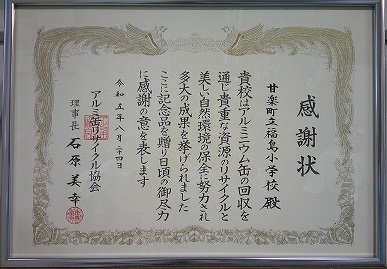 感謝状
甘楽町立福島小学校 殿
貴校はアルミニウム缶の回収を
通じ貴重な資源のリサイクルと
美しい自然環境の保全に努力され
多大の成果を挙げられました
ここに記念品を贈り日頃の御尽力
に感謝の意を表します
令和五年八月二十四日
アルミ缶リサイクル協会
理事長 石原美幸